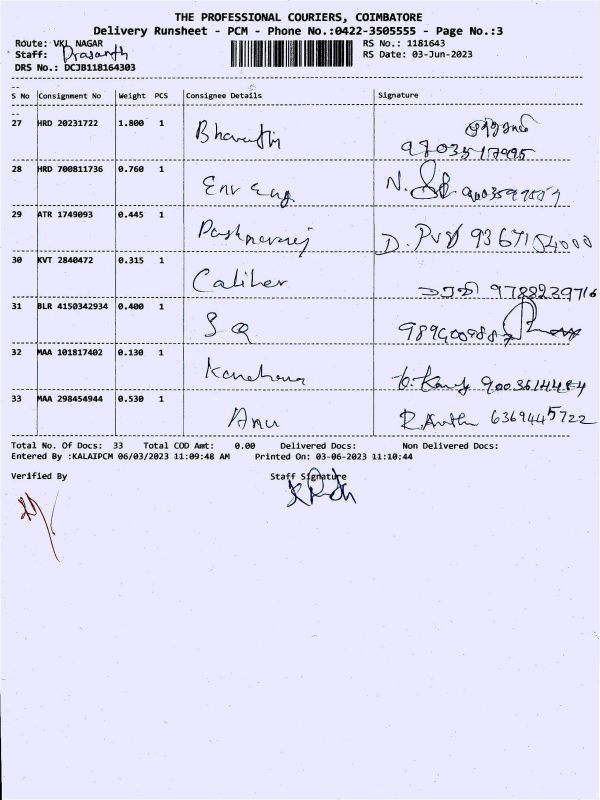 THE PROFESSIONAL COURIERS, COIMBATORE
Delivery Runsheet - PCM - Phone No.:0422-3505555 - Page No.:3
Route: VKL NAGAR RS No.: 1181643
Staff: Prasanth RS Date: 03-Jun-2023
DRS No.: DCJB118164303
S No Consignment No Weight PCS Consignee Details Signature
27 HRD 20231722 1.800 1
28 HRD 700811736 0.760 1 Env Eng N.
29 ATR 1749093 0.445 1 D.
30 KVT 2840472 0.315 1 Caliber 9788239716
31 BLR 4150342934 0.400 1 S Q
32 MAA 101817402 0.130 1 Kanchana
33 MAA 298454944 0.530 1 Anu 6369445722
Total No. Of Docs: 33 Total COD Amt: 0.00 Delivered Docs: Non Delivered Docs:
Entered By :KALAIPCM 06/03/2023 11:09:48 AM Printed On: 03-06-2023 11:10:44
Verified By Staff Signature